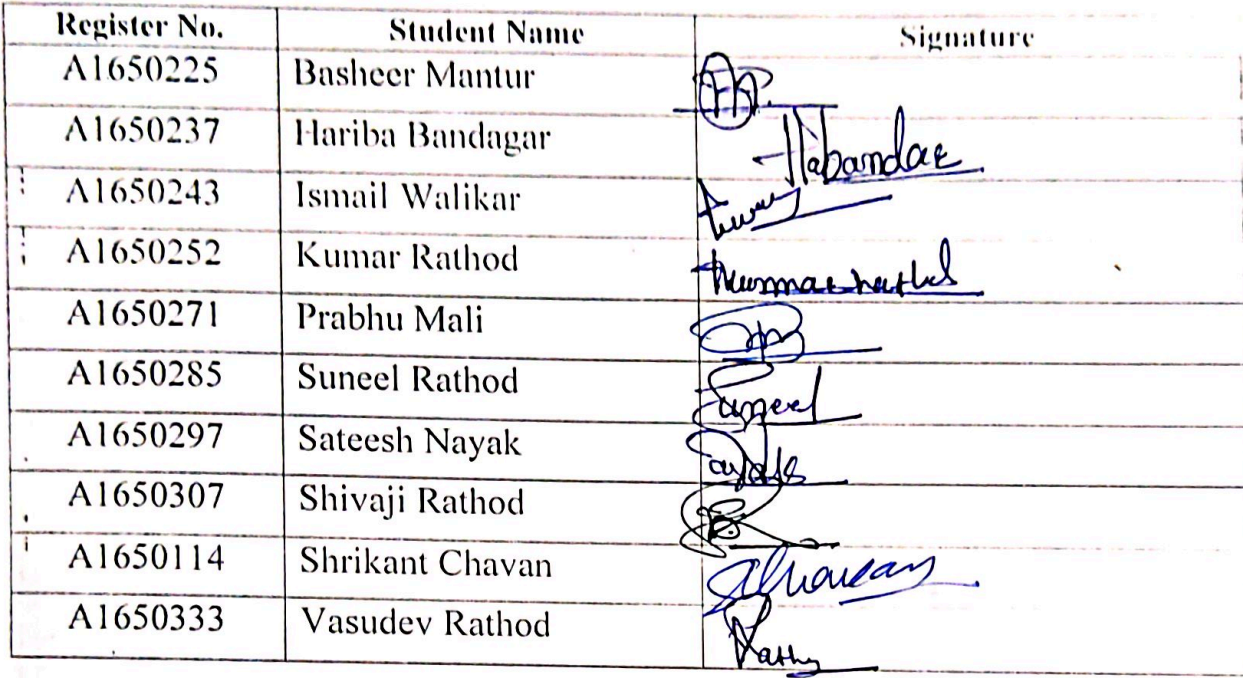 Register No. Student Name Signature
A1650225 Basheer Mantur
A1650237 Hariba Bandagar
A1650243 Ismail Walikar
A1650252 Kumar Rathod
A1650271 Prabhu Mali
A1650285 Suneel Rathod Suneel
A1650297 Sateesh Nayak
A1650307 Shivaji Rathod
A1650114 Shrikant Chavan
A1650333 Vasudev Rathod